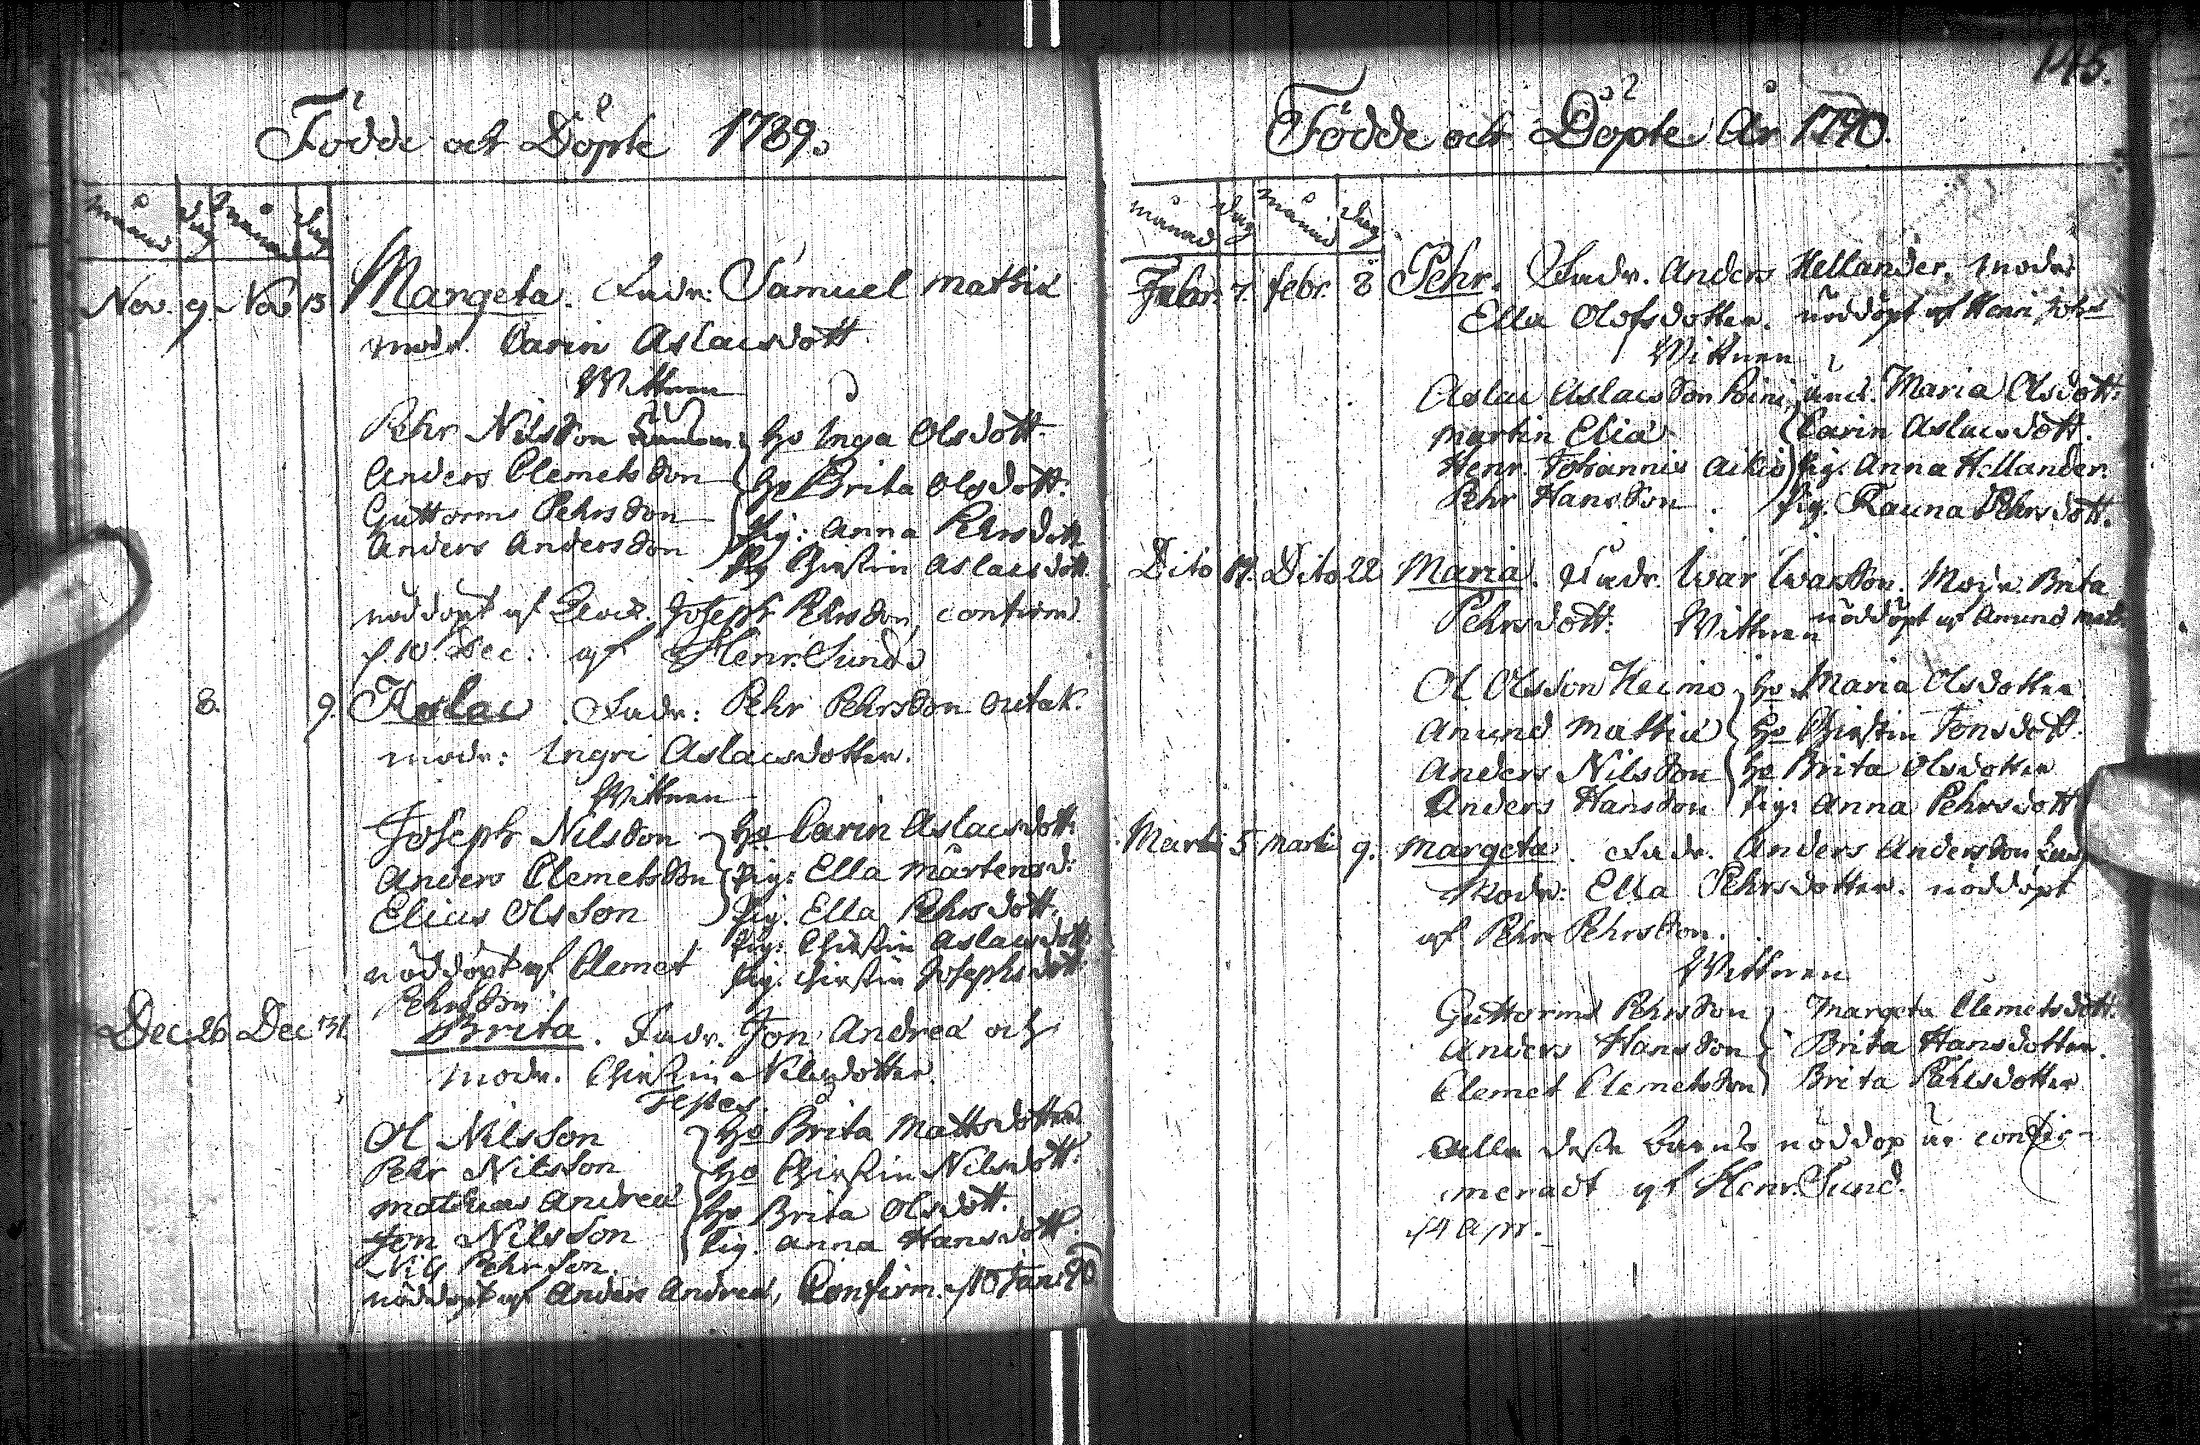 Födde och Döpte 1789.
månad dag månad dag
Nov. 9. Nov 15 Margeta. Fadr: Samuel Mathiæ
modr. Carin Aslacsdott
Wittnen
Pehr Nilsson ho Inga Olsdott.
Anders Clemetsson ho Brita Olsdott.
Guttorm Pehrsson pig: Anna Pehrsdott
Anders Andersson pig Christin Aslacsdott.
nöddöpt af Joseph Pehrsson, confirm.
d. 10 Dec. af Henr. Sund.
8. 9. Aslac. Fadr: Pehr Pehrsson Outak.
modr: Ingri Aslacsdotter.
Wittnen
Joseph Nilsson ho Carin Aslacsdott.
Anders Clemetsson pig: Ella Mårtensd:
Elias Olsson pig. Ella Pehrsdott.
pig: Christin Aslacsdott.
nöddöpt af Clemet pig. Christin Josephsdott
Pehrsson
Dec. 26 Dec 31 Brita. Fadr. Jon Andreæ och
modr. Christin Nilsdotter.
Testes.
Ol Nilsson ho Brita Mattsdotter
Pehr Nilsson ho Christin Nilsdott.
Mathias Andreæ ho Brita Olsdott.
Jon Nilsson pig. Anna Hansdott.
Nils Pehrson.
nöddöpt af Anders Andreæ, Confirm. 10 Jan: 90
145.
Födde och Döpte År 1790.
månad dag månad dag
Febr. 7. febr. 8 Pehr. Fadr. Anders Hellander, modr.
Ella Olofsdotter. nöddöpt af Henr. Joh:
Wittnen
Aslac Aslacsson Maria Olsdott.
Martin Eliæ Carin Aslacsdott.
Henr. Johannis Aikio pig. Anna Hellander.
Pehr Hansson. pig. Rauna Pehrsdott.
Dito 17. Dito 22 Maria. Fadr. Ivar Ivarsson. Modr. Brita
Pehrsdott. Wittnen nöddöpt af Amund Math.
Ol Olsson Keimo ho Maria Olsdotter
Amund Mathiæ ho Christin Jonsdott.
Anders Nilsson ho Brita Olsdotter
Anders Hansson pig: Anna Pehrsdott
Martii 5 Martii 9. Margeta. Fadr. Anders Andersson
Modr: Ella Pehrsdotter. nöddöpt
af Pehr Pehrsson.
Wittnen
Guttorm Pehrsson Margeta Clemetsdott.
Anders Hansson Brita Hansdotter.
Clemet Clemetsson Brita Pehrsdotter
Alla desse barns nöddop är confir-
meradt af Henr. Sund.
4 apr.